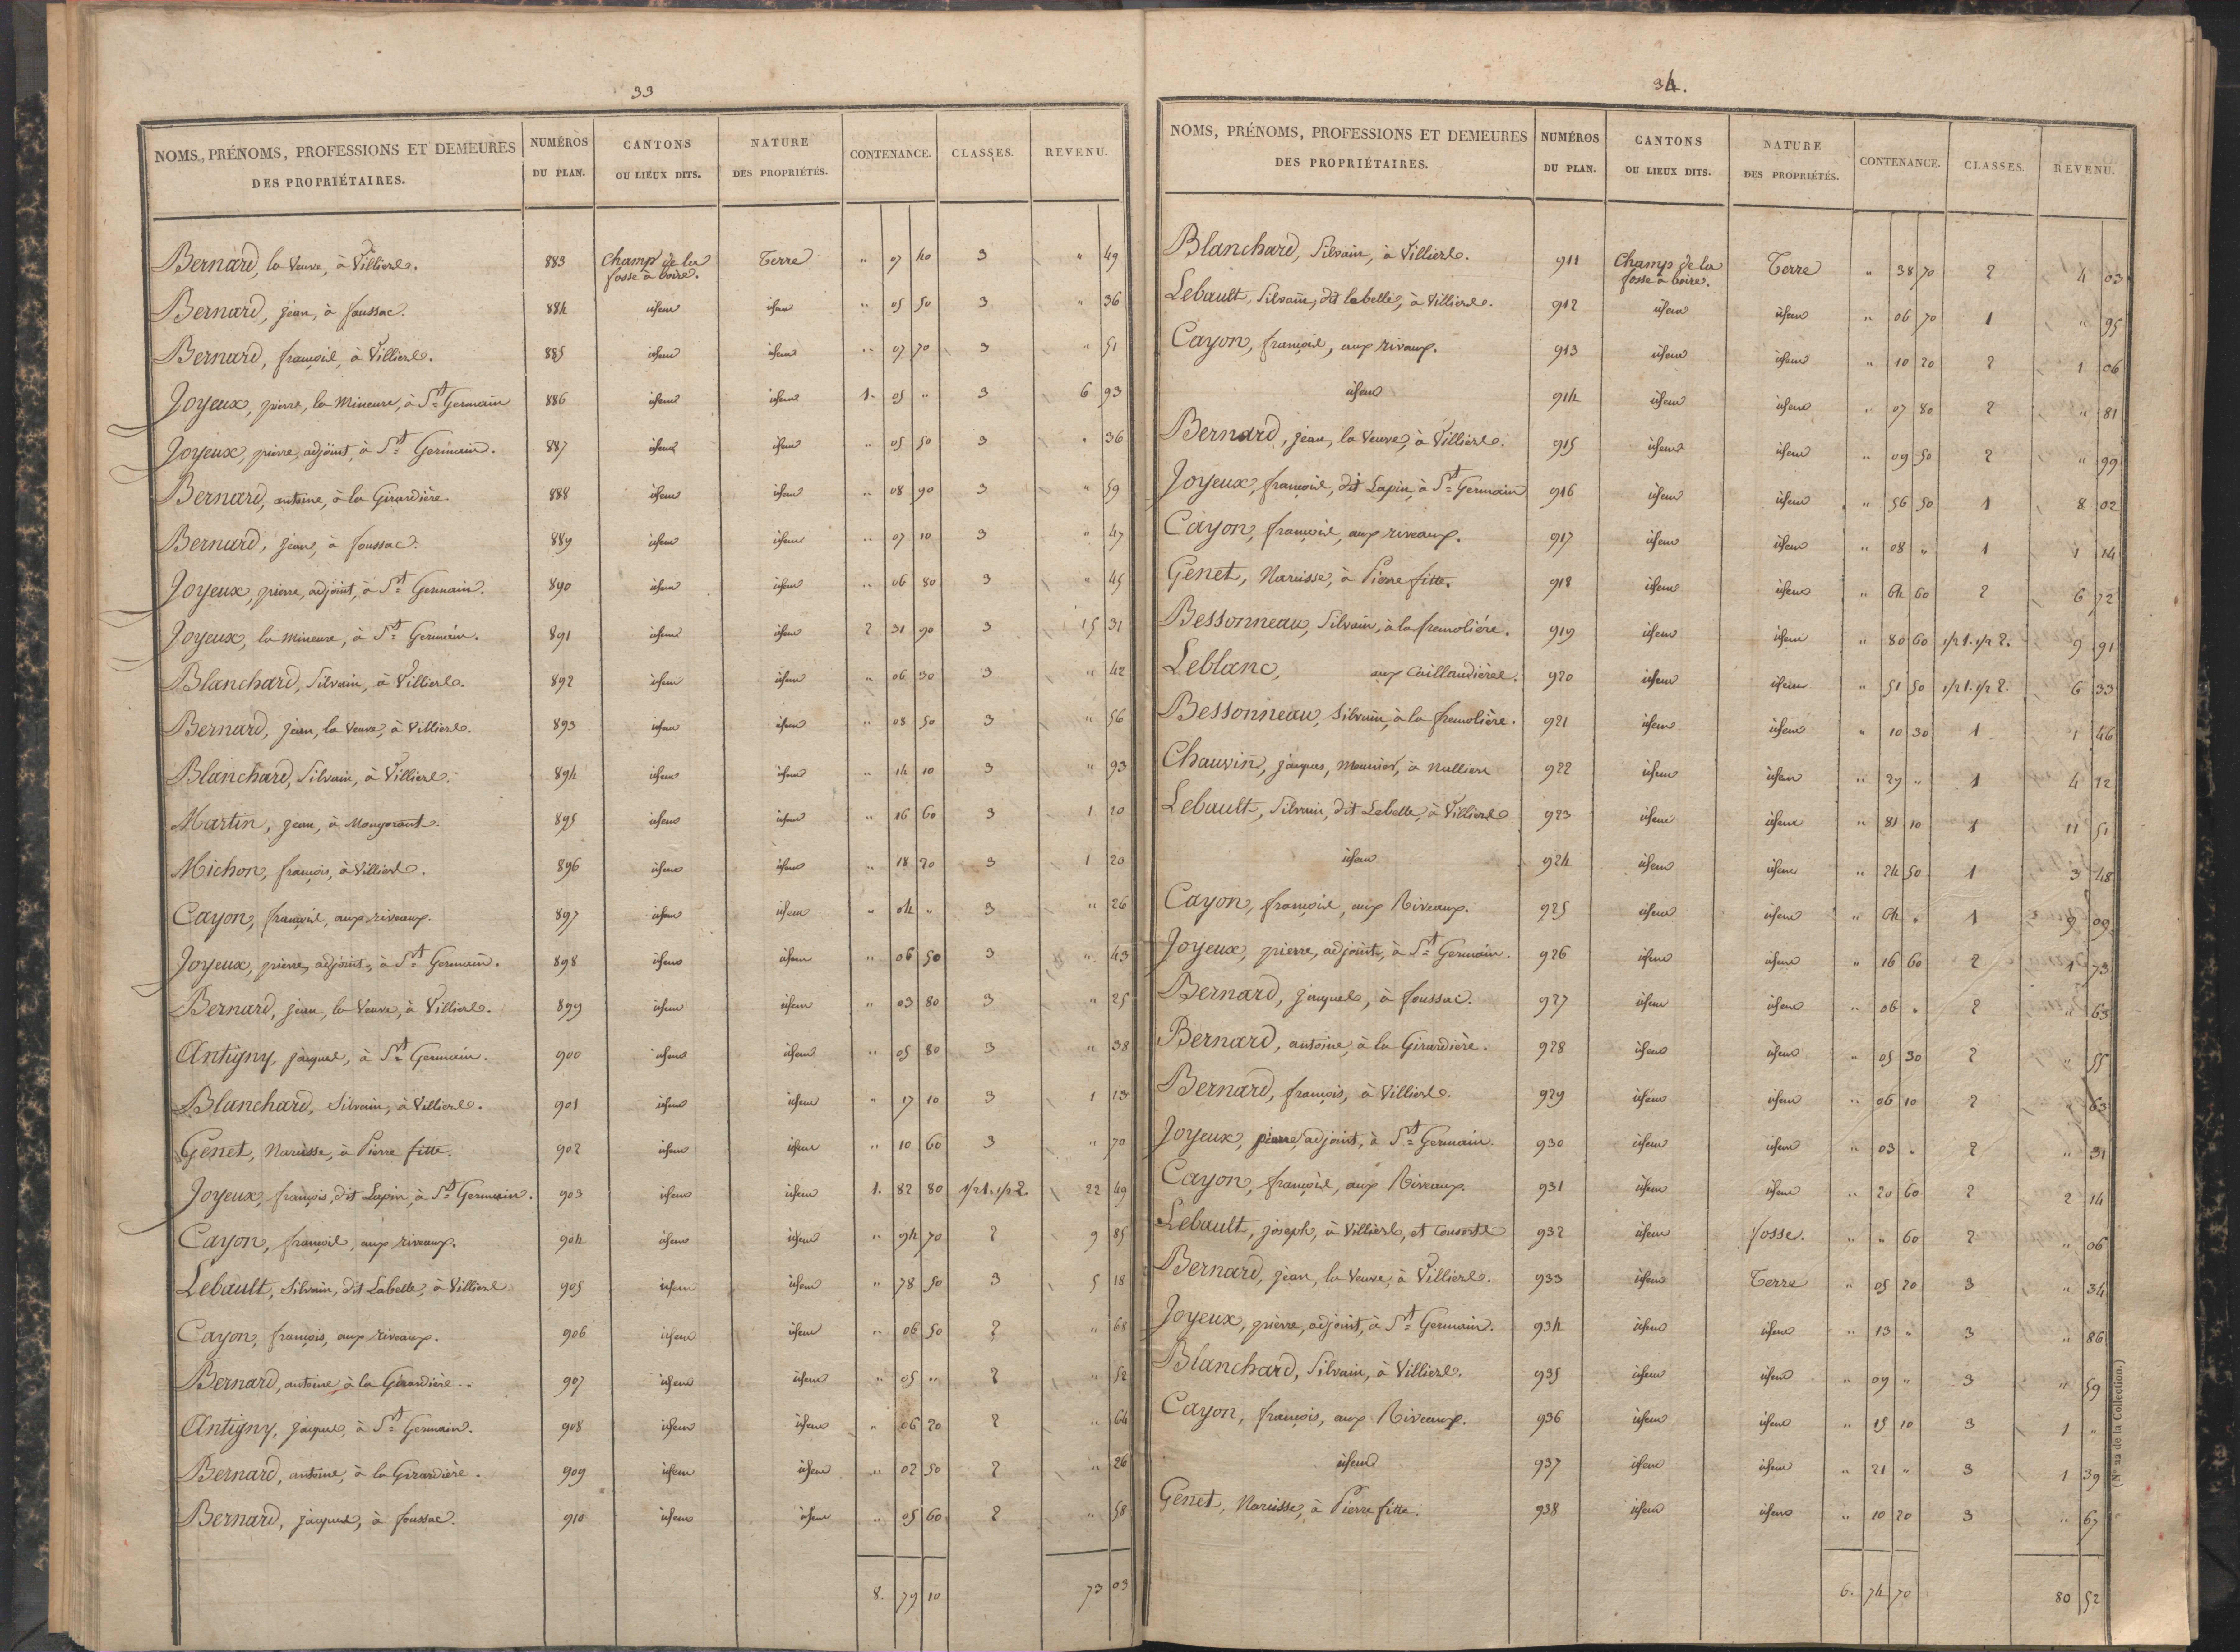 33
NOMS, PRÉNOMS, PROFESSIONS ET DEMEURES DES PROPRIÉTAIRES. NUMÉROS DU PLAN. CANTONS OU LIEUX DITS. NATURE DES PROPRIÉTÉS. CONTENANCE. CLASSES. REVENU.
Bernard, la Veuve, à Villiers. 883 Champ de la fosse à boire. Terre " 07 40 3 " 49
Bernard, jean, à foussac. 884 idem idem " 05 50 3 " 36
Bernard, françois, à Villiers. 885 idem idem " 07 70 3 " 51
Joyeux, pierre, la Mineure, à St Germain 886 idem idem 1. 05 " 3 6 93
Joyeux, pierre, adjoint, à St Germain. 887 idem idem " 05 50 3 " 36
Bernard, antoine, à la Girardière. 888 idem idem " 08 90 3 " 59
Bernard, jean, à foussac. 889 idem idem " 07 10 3 " 47
Joyeux, pierre, adjoint, à St Germain. 890 idem idem " 06 80 3 " 45
Joyeux, la Mineure, à St Germain. 891 idem idem 2 31 90 3 15 31
Blanchard, Silvain, à Villiers. 892 idem idem " 06 30 3 " 42
Bernard, jean, la Veuve, à Villiers. 893 idem idem " 08 50 3 " 56
Blanchard, Silvain, à Villiers. 894 idem idem " 14 10 3 " 93
Martin, jean, à 895 idem idem " 16 60 3 1 20
Michon, françois, à Villiers. 896 idem idem " 18 20 3 1 20
Cayon, françois, aux riveaux. 897 idem idem " 04 " 3 " 26
Joyeux, pierre, adjoint, à St Germain. 898 idem idem " 06 50 3 " 43
Bernard, jean, la Veuve, à Villiers. 899 idem idem " 03 80 3 " 25
Antigny, jacques, à St Germain. 900 idem idem " 05 80 3 " 38
Blanchard, Silvain, à Villiers. 901 idem idem " 17 10 3 1 13
Genet, Narcisse, à Pierre fitte. 902 idem idem " 10 60 3 " 70
Joyeux, françois, dit Lapin, à St Germain. 903 idem idem 1. 82 80 1/2 1. 1/2 2. 22 49
Cayon, françois, aux riveaux. 904 idem idem " 94 70 2 9 85
Lebault, Silvain, dit Labelle, à Villiers. 905 idem idem " 78 50 3 5 18
Cayon, françois, aux riveaux. 906 idem idem " 06 50 2 " 68
Bernard, antoine, à la Girardière. 907 idem idem " 05 " 2 " 52
Antigny, jacques, à St Germain. 908 idem idem " 06 20 2 " 64
Bernard, antoine, à la Girardière. 909 idem idem " 02 50 2 " 26
Bernard, jacques, à foussac. 910 idem idem " 05 60 2 " 58
8. 79 10 73 03
34.
NOMS, PRÉNOMS, PROFESSIONS ET DEMEURES DES PROPRIÉTAIRES. NUMÉROS DU PLAN. CANTONS OU LIEUX DITS. NATURE DES PROPRIÉTÉS. CONTENANCE. CLASSES. REVENU.
Blanchard, Silvain, à Villiers. 911 Champ de la fosse à boire. Terre " 38 70 2 4 03
Lebault, Silvain, dit labelle, à Villiers. 912 idem idem " 06 70 1 " 95
Cayon, françois, aux rivaux. 913 idem idem " 10 20 2 1 06
idem 914 idem idem " 07 80 2 " 81
Bernard, jean, la Veuve, à Villiers. 915 idem idem " 09 50 2 " 99
Joyeux, françois, dit Lapin, à St Germain 916 idem idem " 56 50 1 8 02
Cayon, françois, aux riveaux. 917 idem idem " 08 " 1 1 14
Genet, Narcisse, à Pierre fitte. 918 idem idem " 64 60 2 6 72
Bessonneau, Silvain, à la fremolière. 919 idem idem " 80 60 1/2 1. 1/2 2. 9 91
Leblanc, aux Caillaudières. 920 idem idem " 51 50 1/2 1. 1/2 2. 6 33
Bessonneau, Silvain, à la fremolière. 921 idem idem " 10 30 1 1 46
Chauvin, jacques, Meunier, à 922 idem idem " 29 " 1 4 12
Lebault, Silvain, dit Labelle, à Villiers 923 idem idem " 81 10 1 11 51
idem 924 idem idem " 24 50 1 3 48
Cayon, françois, aux Riveaux. 925 idem idem " 64 " 1 9 09
Joyeux, pierre, adjoint, à St Germain. 926 idem idem " 16 60 2 1 73
Bernard, jacques, à foussac. 927 idem idem " 06 " 2 " 63
Bernard, antoine, à la Girardière. 928 idem idem " 05 30 2 " 55
Bernard, françois, à Villiers. 929 idem idem " 06 10 2 " 63
Joyeux, pierre, adjoint, à St Germain. 930 idem idem " 03 " 2 " 31
Cayon, françois, aux Riveaux. 931 idem idem " 20 60 2 2 14
Lebault, joseph, à Villiers, et Consorts 932 idem fosse. " " 60 2 " 06
Bernard, jean, la Veuve, à Villiers. 933 idem Terre " 05 20 3 " 34
Joyeux, pierre, adjoint, à St Germain. 934 idem idem " 13 " 3 " 86
Blanchard, Silvain, à Villiers. 935 idem idem " 09 " 3 " 59
Cayon, françois, aux Riveaux. 936 idem idem " 15 10 3 1 "
idem 937 idem idem " 21 " 3 1 39
Genet, Narcisse, à Pierre fitte. 938 idem idem " 10 20 3 " 67
6. 74 70 80 52
(N° 22 de la Collection.)